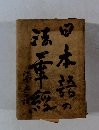 日本語の
法華経